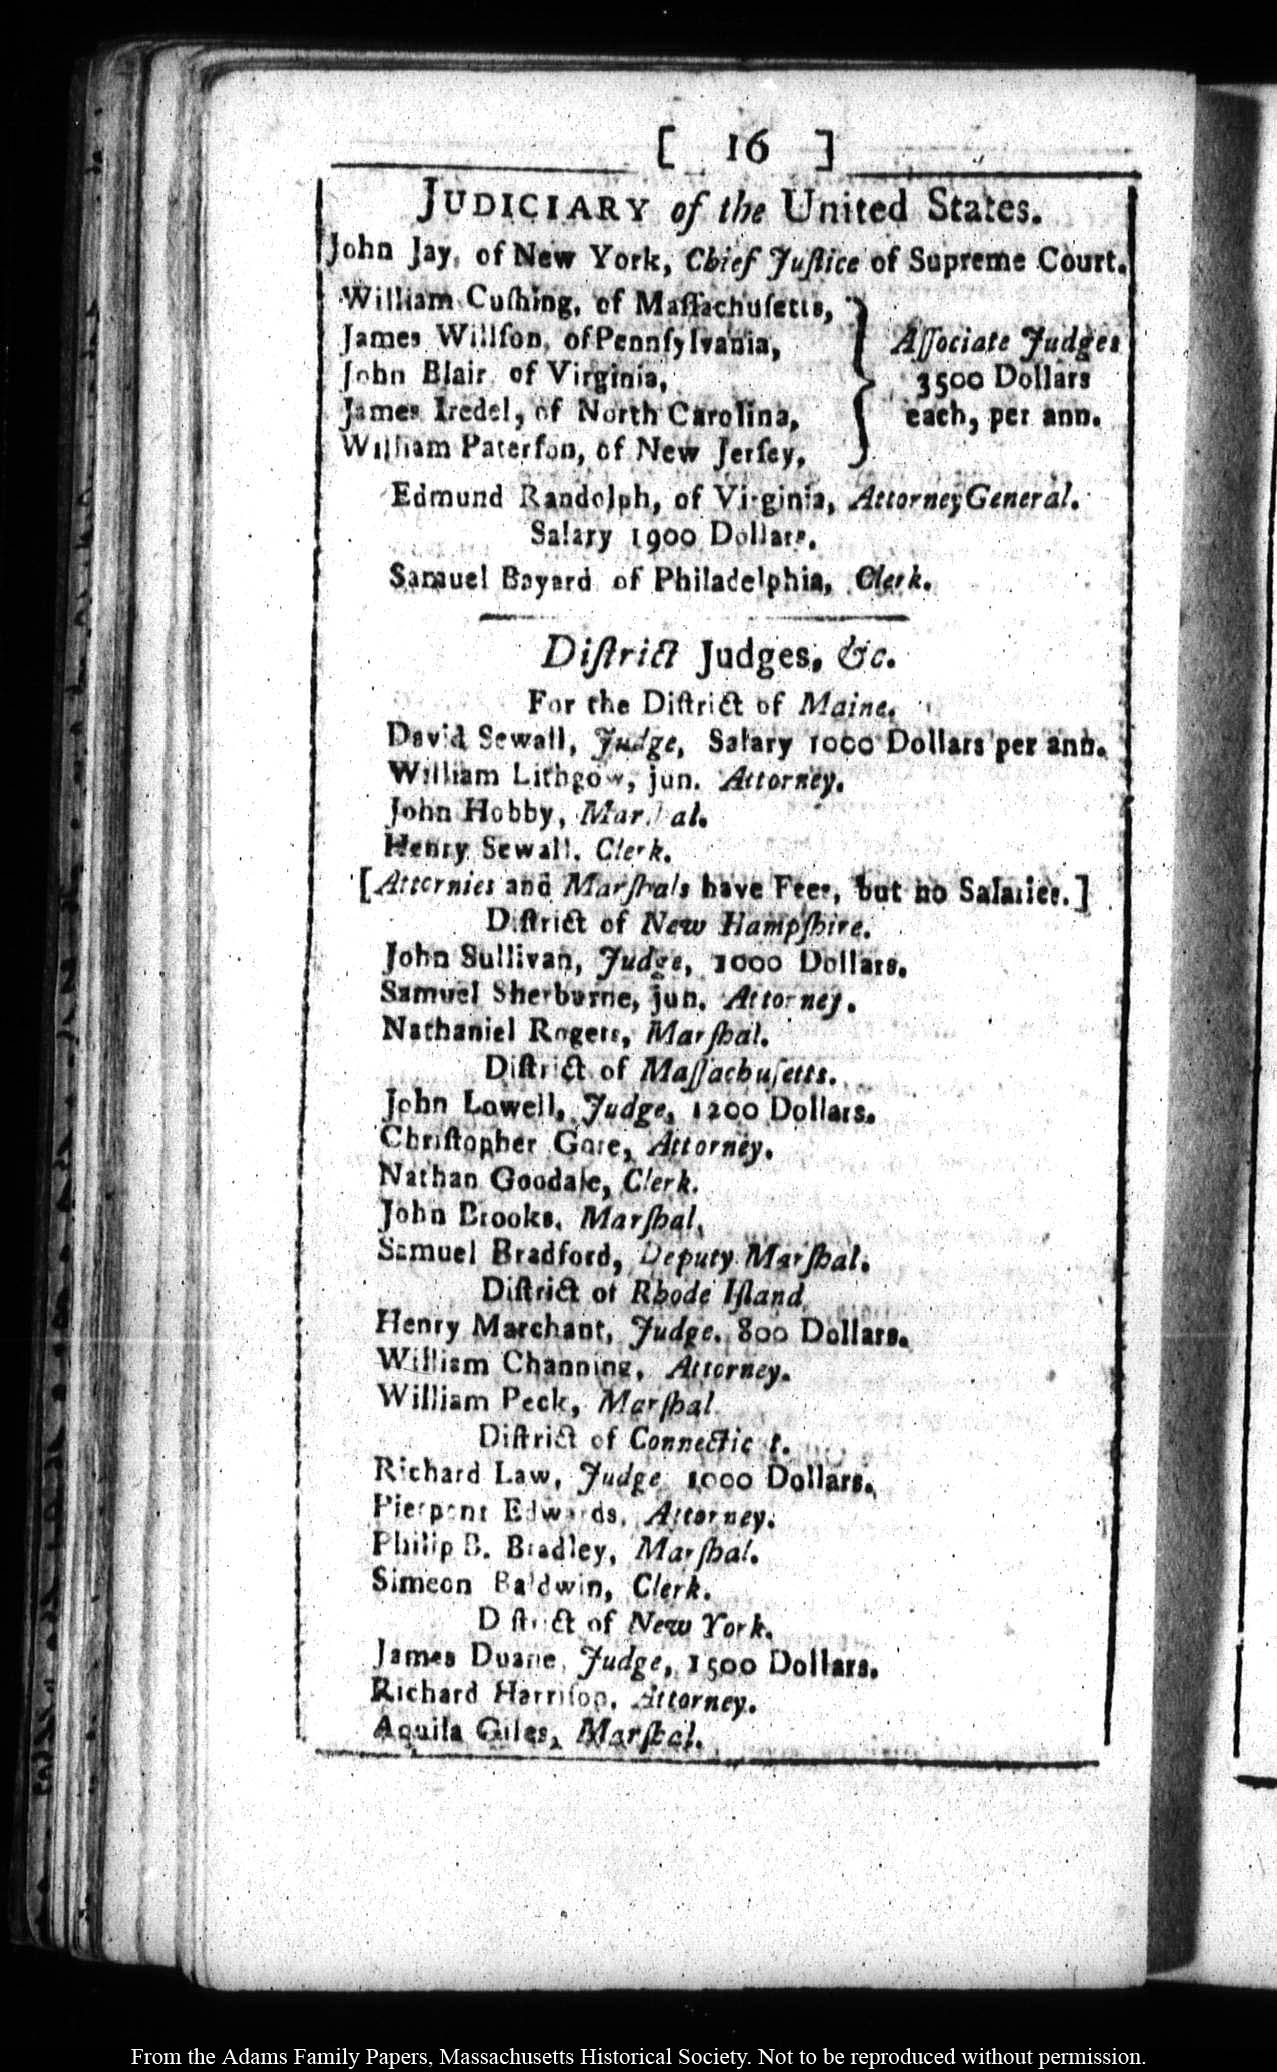 [ 16 ]
JUDICIARY of the United States.
John Jay, of New York, Chief Juſtice of Supreme Court.
William Cuſhing, of Maſſachuſetts,
James Willſon, of Pennſylvania,
John Blair of Virginia,
James Iredel, of North Carolina,
William Paterſon, of New Jerſey,
Aſſociate Judges
3500 Dollars
each, per ann.
Edmund Randolph, of Virginia, Attorney General.
Salary 1900 Dollars.
Samuel Bayard of Philadelphia, Clerk.
Diſtrict Judges, &c.
For the Diſtrict of Maine.
David Sewall, Judge, Salary 1000 Dollars per ann.
William Lithgow, jun. Attorney.
John Hobby, Marſhal.
Henry Sewall, Clerk.
[Attornies and Marſhals have Fees, but no Salaries.]
Diſtrict of New Hampſhire.
John Sullivan, Judge, 1000 Dollars.
Samuel Sherburne, jun. Attorney.
Nathaniel Rogers, Marſhal.
Diſtrict of Maſſachuſetts.
John Lowell, Judge, 1200 Dollars.
Chriſtopher Gore, Attorney.
Nathan Goodale, Clerk.
John Brooks, Marſhal,
Samuel Bradford, Deputy Marſhal.
Diſtrict of Rhode Iſland
Henry Marchant, Judge, 800 Dollars.
William Channing, Attorney.
William Peck, Marſhal.
Diſtrict of Connectic t.
Richard Law, Judge 1000 Dollars.
Pierpont Edwards, Attorney.
Philip B. Bradley, Marſhal.
Simeon Baldwin, Clerk.
Diſtrict of New York.
James Duane, Judge, 1500 Dollars.
Richard Harriſon, Attorney.
Aquila Giles, Marſhal.
From the Adams Family Papers, Massachusetts Historical Society. Not to be reproduced without permission.